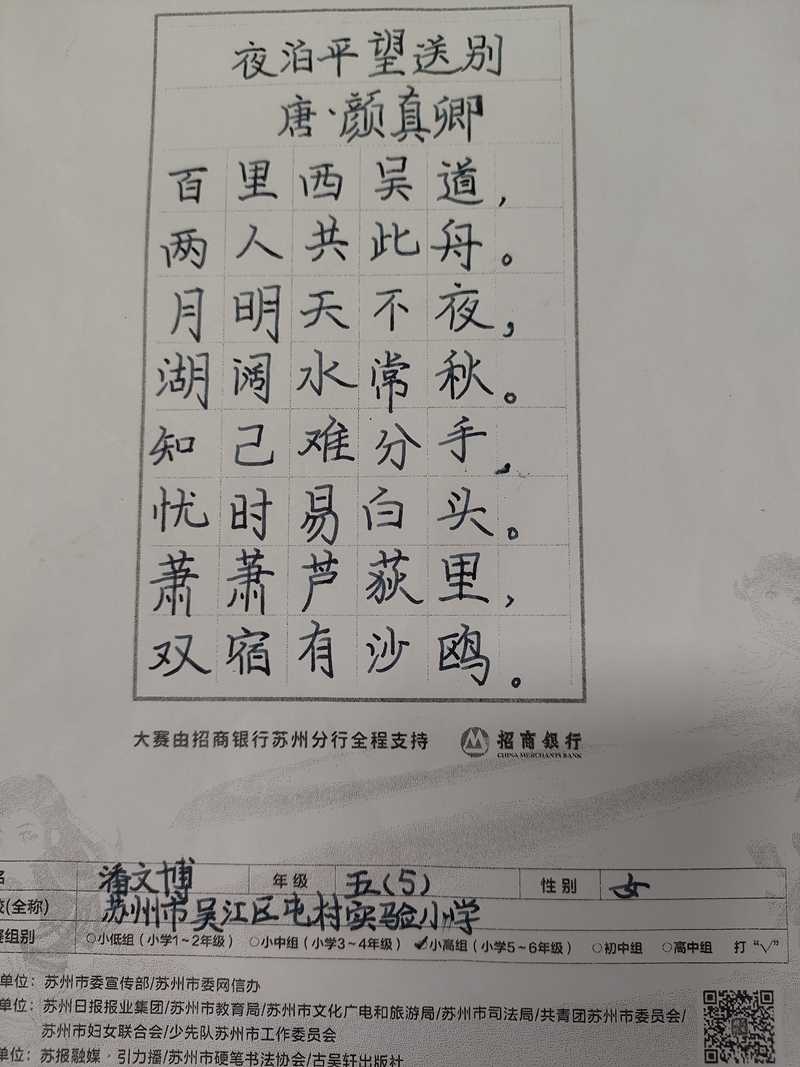 夜泊平望送别
唐·颜真卿
百里西吴道，
两人共此舟。
月明天不夜，
湖阔水常秋。
知己难分手，
忧时易白头。
萧萧芦荻里，
双宿有沙鸥。
大赛由招商银行苏州分行全程支持 招商银行
CHINA MERCHANTS BANK
名 潘文博 年级 五(5) 性别 女
校(全称) 苏州市吴江区屯村实验小学
赛组别 ○小低组（小学1~2年级） ○小中组（小学3~4年级） ✓小高组（小学5~6年级） ○初中组 ○高中组 打“√”
单位：苏州市委宣传部/苏州市委网信办
单位：苏州日报报业集团/苏州市教育局/苏州市文化广电和旅游局/苏州市司法局/共青团苏州市委员会/
苏州市妇女联合会/少先队苏州市工作委员会
单位：苏报融媒·引力播/苏州市硬笔书法协会/古吴轩出版社